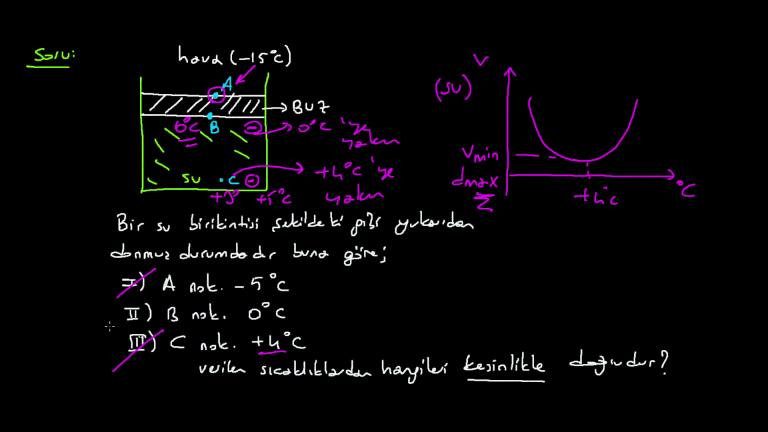 Soru:
hava (-15°C)
A
BUZ
0°C
B
0°C'ye
yakın
su
C
+4°C'ye
yakın
+3° +5°C
V
(su)
Vmin
dmax
+4°C
°C
Bir su birikintisi şekildeki gibi yukarıdan
donmuş durumdadır buna göre;
I) A nok. -5°C
II) B nok. 0°C
III) C nok. +4°C
verilen sıcaklıklardan hangileri kesinlikle doğrudur?